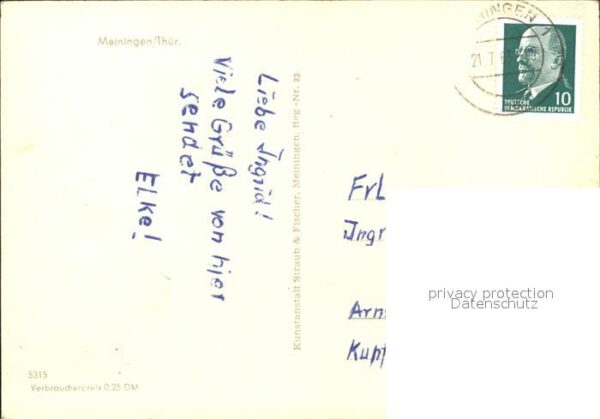 Meiningen/Thür.
Liebe Ingrid!
Viele Grüße von hier
sendet
Elke!
5315
Verbraucherpreis 0,25 DM
Kunstanstalt Straub & Fischer, Meiningen, Reg.-Nr. 22
NINGEN 1
21.7.6
DEUTSCHE
DEMOKRATISCHE REPUBLIK
10
FrL
Ingr
Arn
Kupf
privacy protection
Datenschutz